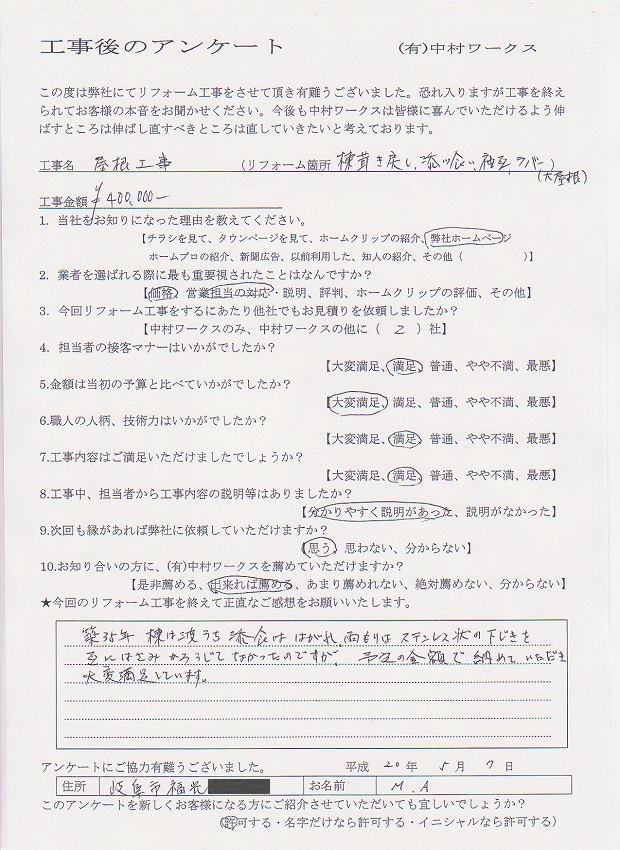 工事後のアンケート (有)中村ワークス
この度は弊社にてリフォーム工事をさせて頂き有難うございました。恐れ入りますが工事を終え
られてお客様の本音をお聞かせください。今後も中村ワークスは皆様に喜んでいただけるよう伸
ばすところは伸ばし直すべきところは直していきたいと考えております。
工事名 屋根工事 (リフォーム箇所 棟茸き戻し、漆喰い、袖瓦、ラバー)
(大屋根)
工事金額 ¥400,000-
1. 当社をお知りになった理由を教えてください。
【チラシを見て、タウンページを見て、ホームクリップの紹介、弊社ホームページ
ホームプロの紹介、新聞広告、以前利用した、知人の紹介、その他( )】
2. 業者を選ばれる際に最も重要視されたことはなんですか?
【価格、営業担当の対応・説明、評判、ホームクリップの評価、その他】
3. 今回リフォーム工事をするにあたり他社でもお見積りを依頼しましたか?
【中村ワークスのみ、中村ワークスの他に( 2 )社】
4. 担当者の接客マナーはいかがでしたか?
【大変満足、満足、普通、やや不満、最悪】
5.金額は当初の予算と比べていかがでしたか?
【大変満足、満足、普通、やや不満、最悪】
6.職人の人柄、技術力はいかがでしたか?
【大変満足、満足、普通、やや不満、最悪】
7.工事内容はご満足いただけましたでしょうか?
【大変満足、満足、普通、やや不満、最悪】
8.工事中、担当者から工事内容の説明等はありましたか?
【分かりやすく説明があった、説明がなかった】
9.次回も縁があれば弊社に依頼していただけますか?
【思う、思わない、分からない】
10.お知り合いの方に、(有)中村ワークスを薦めていただけますか?
【是非薦める、出来れば薦める、あまり薦めれない、絶対薦めない、分からない】
★今回のリフォーム工事を終えて正直なご感想をお願いいたします。
築35年 棟は波うち 漆喰は はがれ、雨もりは ステンレス状の下じきを
瓦にはさみ かろうじて なかったのですが、予定の金額で 納めて いただき
大変満足しています。
アンケートにご協力有難うございました。 平成 20 年 5 月 7 日
住所 岐阜市福光 お名前 M.A
このアンケートを新しくお客様になる方にご紹介させていただいても宜しいでしょうか?
(許可する・名字だけなら許可する・イニシャルなら許可する)